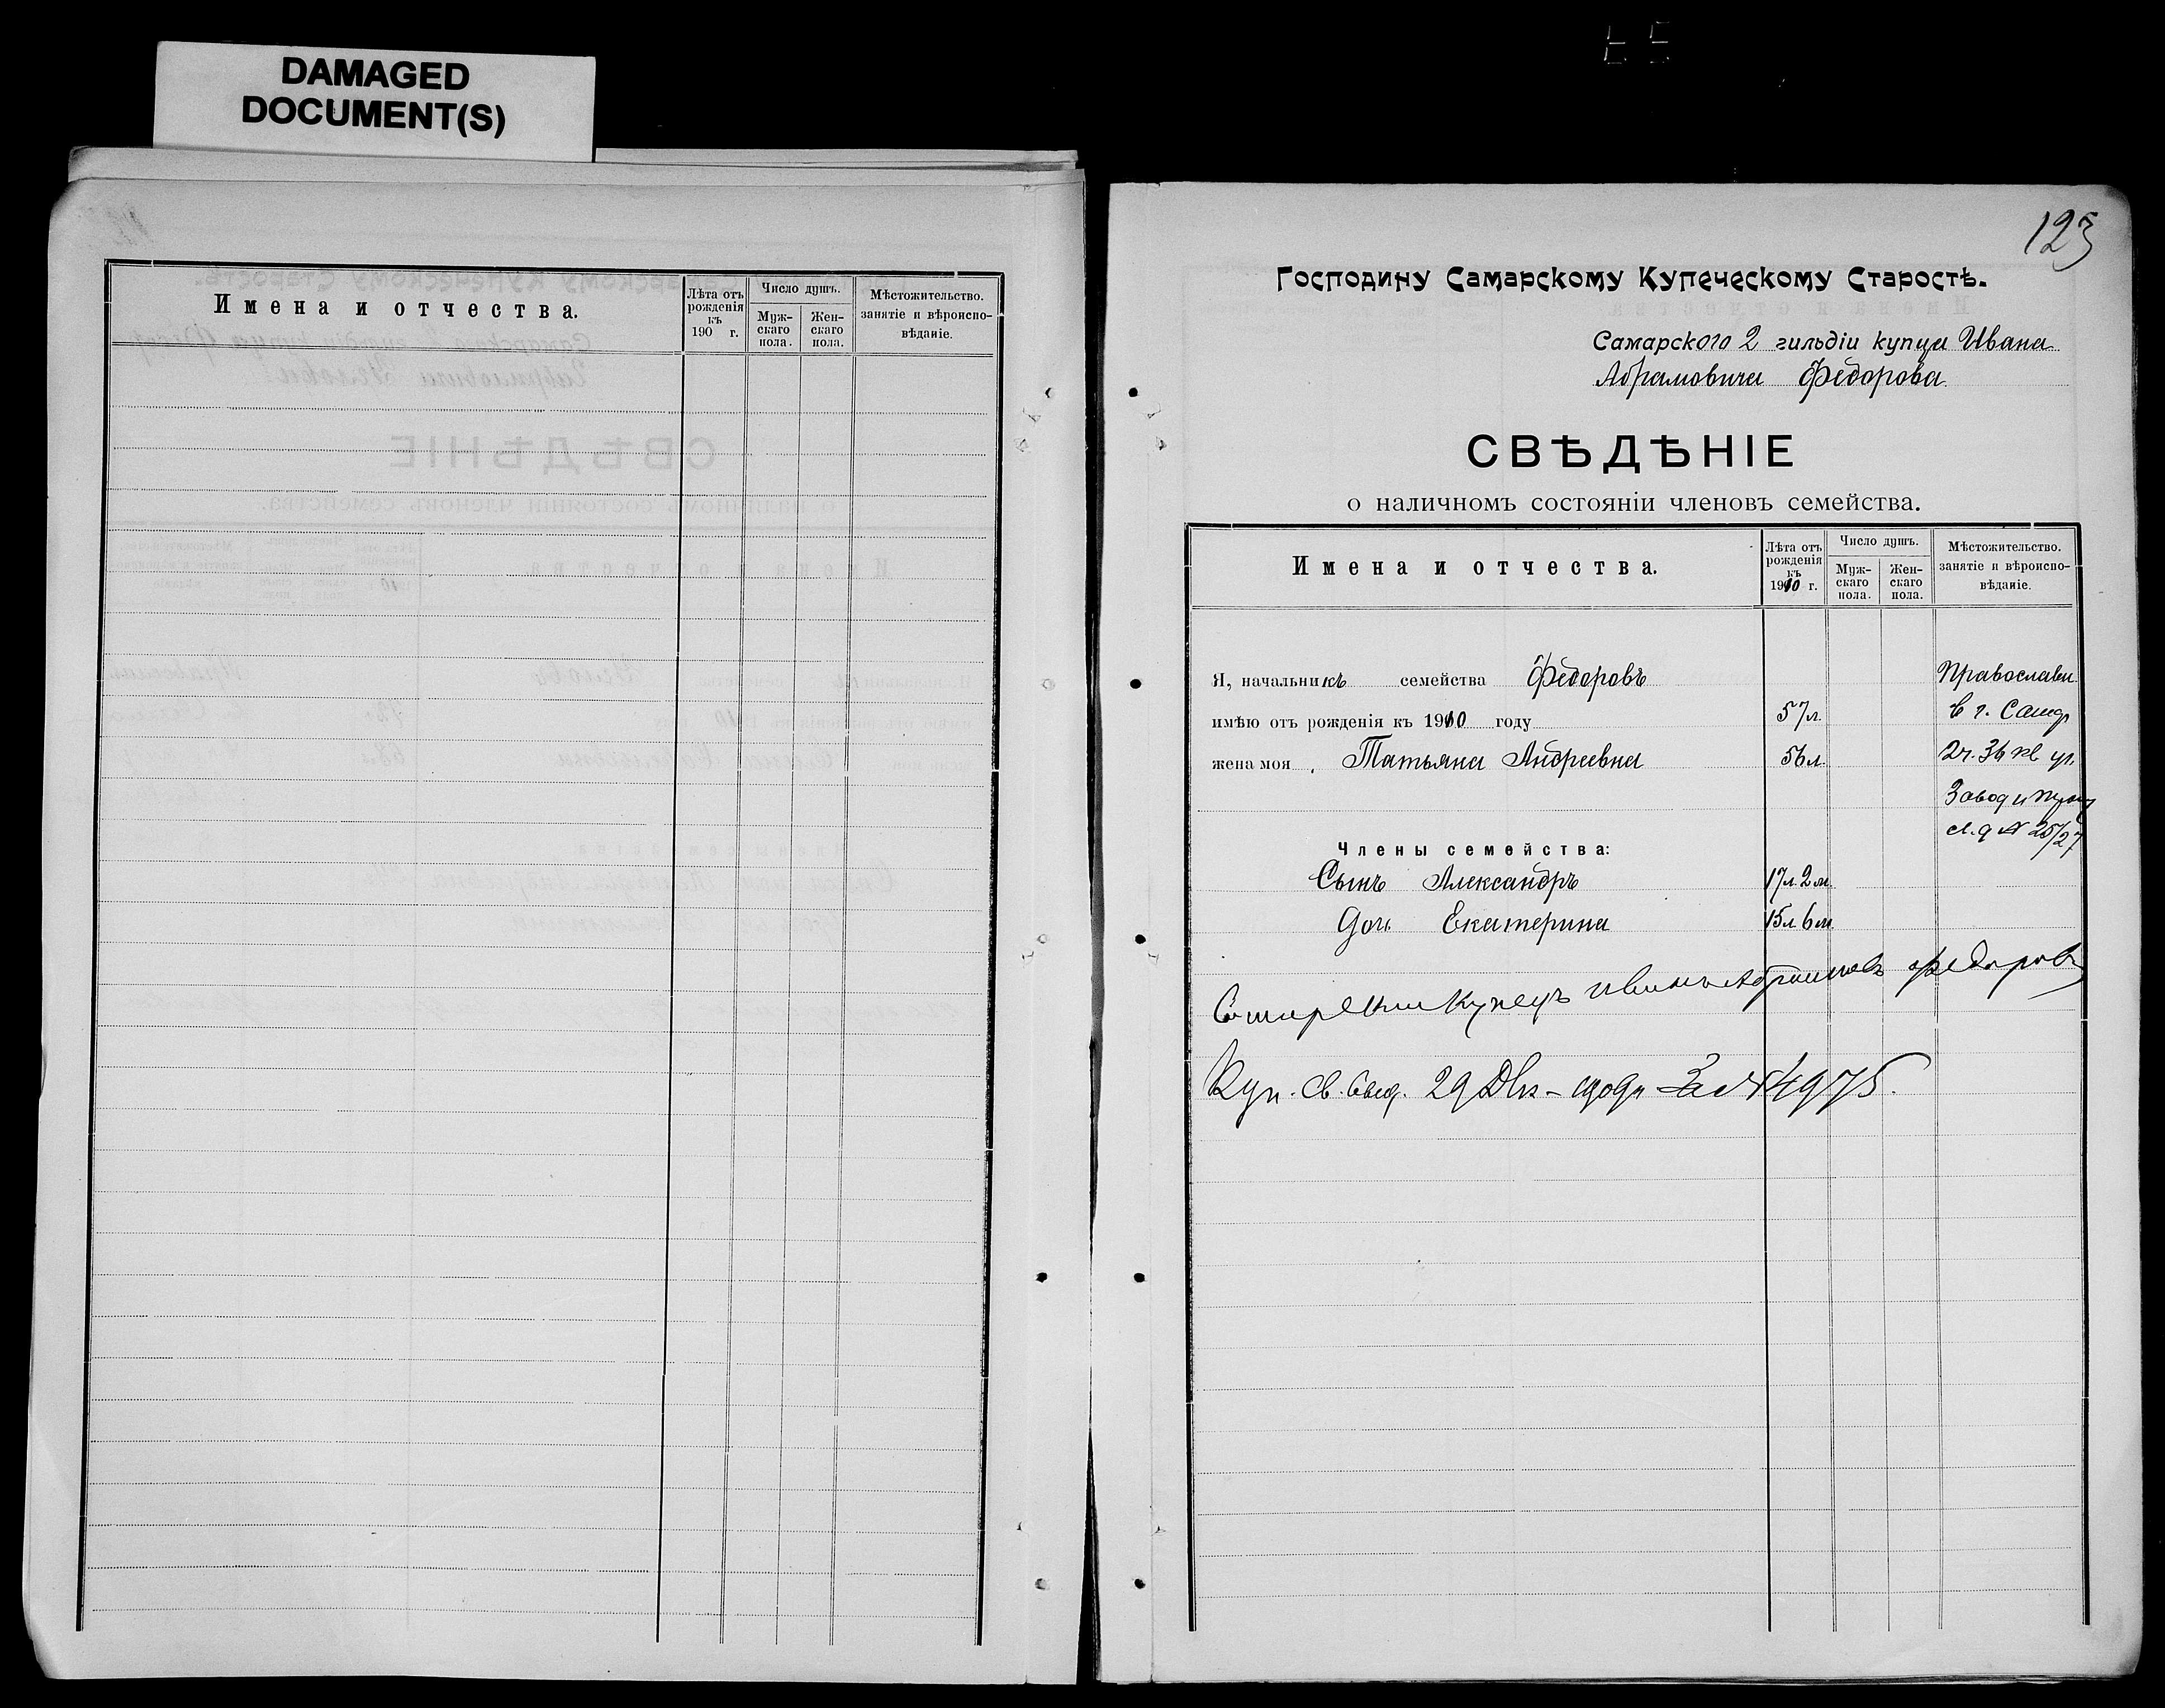 DAMAGED
DOCUMENT(S)
Имена и отчества.
Лѣта отъ рожденія къ 190 г.
Число душъ.
Муж-скаго пола.
Жен-скаго пола.
Мѣстожительство. занятіе и вѣроиспо-вѣданіе.
123
Господину Самарскому Купеческому Старостѣ.
Самарского 2 гильдіи купца Ивана
Абрамовича Федорова
СВѢДѢНІЕ
о наличномъ состояніи членовъ семейства.
Имена и отчества.
Лѣта отъ рожденія къ 1910 г.
Число душъ.
Муж-скаго пола.
Жен-скаго пола.
Мѣстожительство. занятіе и вѣроиспо-вѣданіе.
Я, начальникъ семейства Федоровъ Православн.
имѣю отъ рожденія къ 1910 году 57 л. в г. Самар
жена моя Татьяна Андреевна 56 л. 2 ч. 36 кв ул.
Завод и
д № 25/27
Члены семейства:
Сынъ Александръ 17 л. 2 м.
Доч. Екатерина 15 л 6 м.
Купецъ Иванъ Абрамовъ Федоровъ
Куп. св. 29 Дек - 1909 За № 4975.